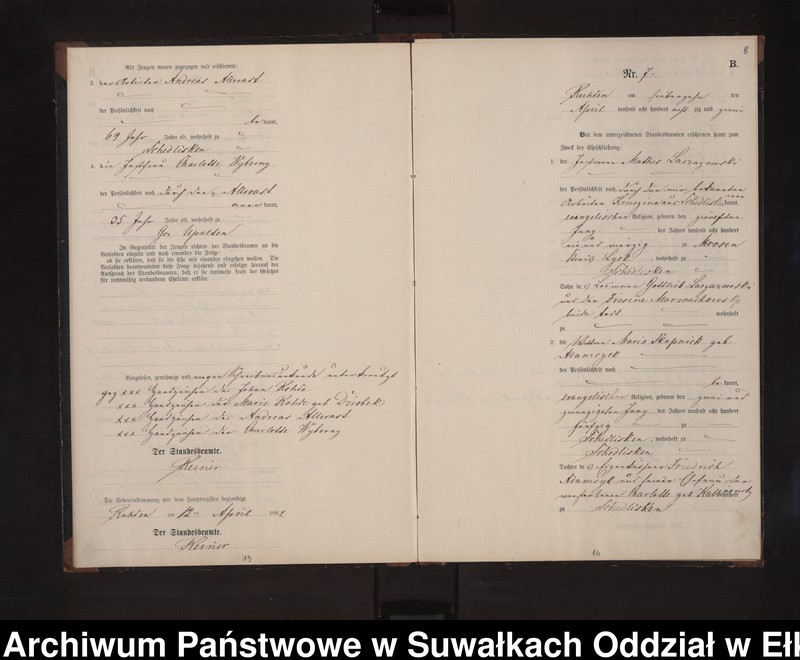 Mit Zeugen waren zugezogen und erschienen:
3. der Arbeiter Andreas Allerast
der Persönlichkeit nach
be kannt,
69 Jahr Jahre alt, wohnhaft zu
Schedlisken
4. die Charlotte Wyborny
der Persönlichkeit nach durch den Allerast
aner kannt,
35 Jahr Jahre alt, wohnhaft zu
Gr Upalten
In Gegenwart der Zeugen richtete der Standesbeamte an die
Verlobten einzeln und nach einander die Frage:
ob sie erklären, daß sie die Ehe mit einander eingehen wollen. Die
Verlobten beantworteten diese Frage bejahend und erfolgte hierauf der
Ausspruch des Standesbeamten, daß er sie nunmehr kraft des Gesetzes
für rechtmäßig verbundene Eheleute erkläre.
Vorgelesen, genehmigt und wegen Schreibensunkunde unterkreuzt
gez xxx Handzeichen des Johan
xxx Handzeichen der Marie geb
xxx Handzeichen des Andreas Allerast
xxx Handzeichen der Charlotte Wyborny
Der Standesbeamte.
Keiner
Die Uebereinstimmung mit dem Hauptregister beglaubigt
am 12ten April 1882
Der Standesbeamte.
Keiner
13
8
B.
Nr. 7
am siebenzehn ten
April tausend acht hundert acht zig und zwei
Vor dem unterzeichneten Standesbeamten erschienen heute zum
Zweck der Eheschließung:
1. der Mathes
der Persönlichkeit nach durch den
Arbeiter aus Schedlisken kannt,
evangelischer Religion, geboren den zwoelften
Juny des Jahres tausend acht hundert
ein und vierzig zu Moosen
Kreis Lyck, wohnhaft zu
Schedlisken
Sohn des Gottlieb
und der
beide todt wohnhaft
zu
2. die Wittwe Marie Skopnick geb
Adamczyk
der Persönlichkeit nach
be kannt,
evangelischer Religion, geboren den zwei und
zwanzigsten Juny des Jahres tausend acht hundert
fünfzig zu
Schedlisken, wohnhaft zu
Schedlisken
Tochter des Friedrich
Adamczyk und seiner Ehefrau der
verstorbenen Charlotte geb wohnhaft
zu Schedlisken
14
Archiwum Państwowe w Suwałkach Oddział w Ełk